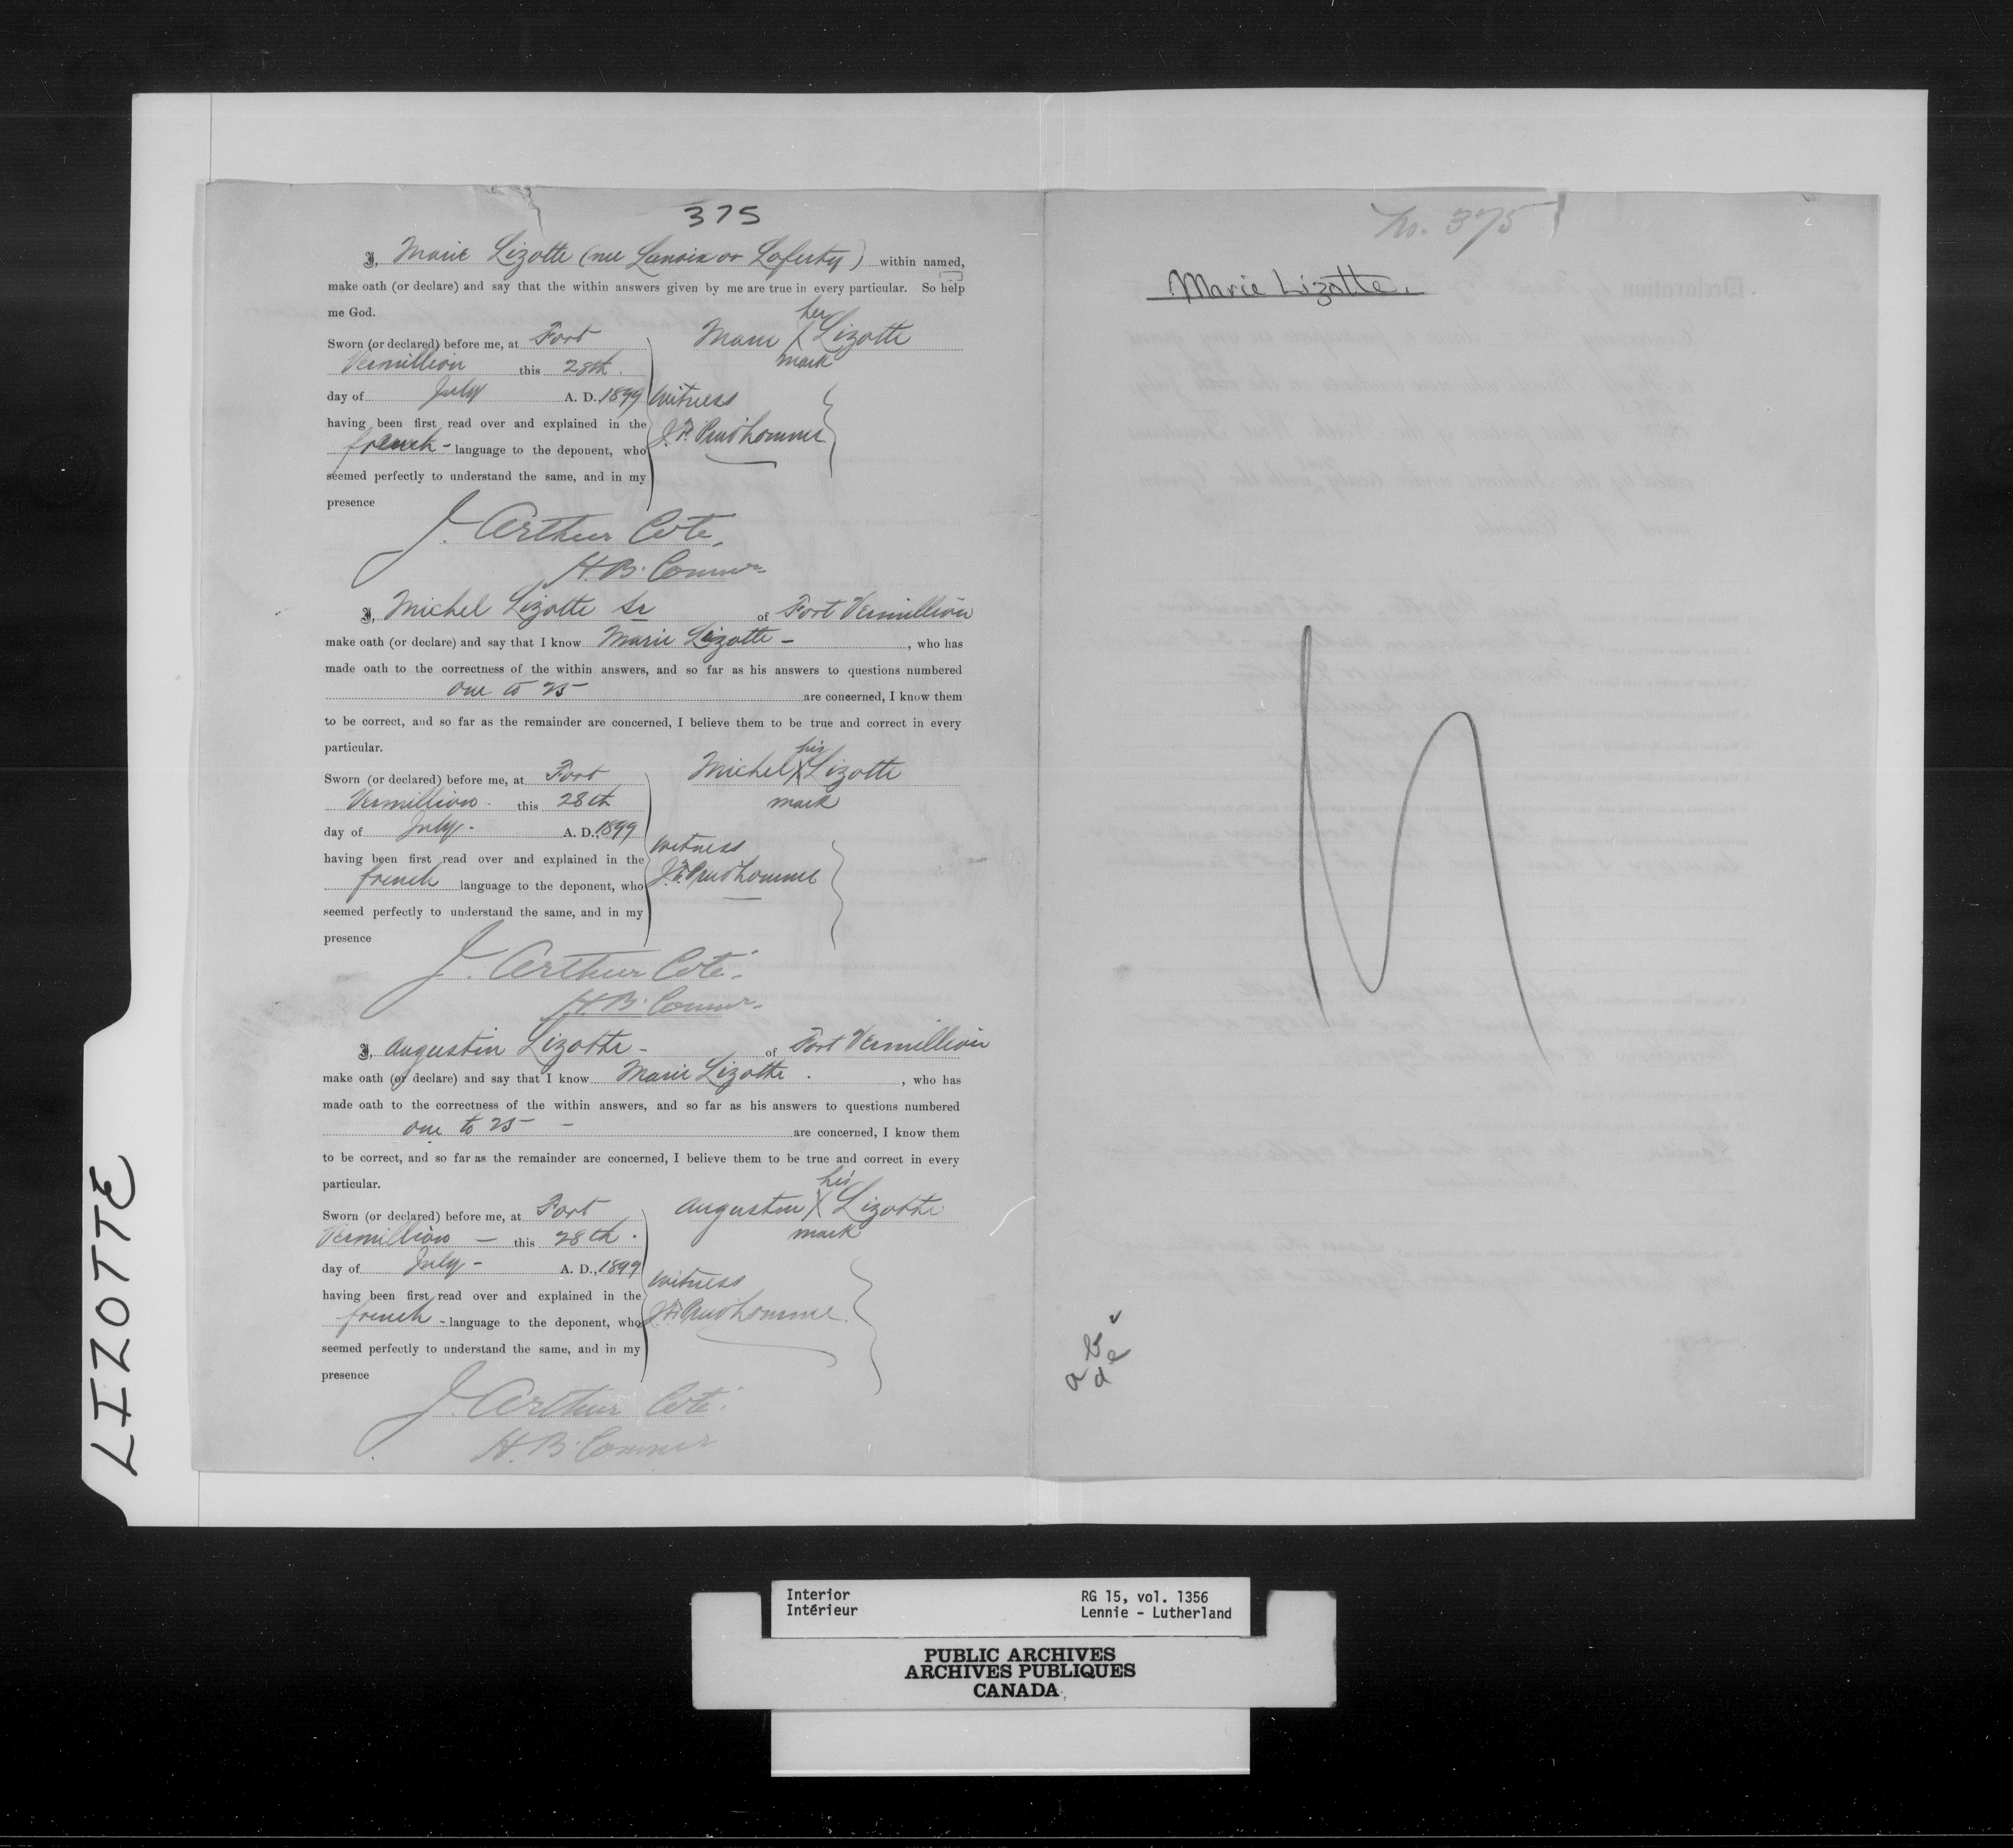 375
I, Marie Lizotte (nee Lanoix or Laferty) within named,
make oath (or declare) and say that the within answers given by me are true in every particular. So help
me God.
Sworn (or declared) before me, at Fort
Vermillion this 28th.
day of July A. D. 1899
having been first read over and explained in the
french - language to the deponent, who
seemed perfectly to understand the same, and in my
presence
her
Marie X Lizotte
mark
Witness
J. F. Prudhomme
J. Arthur Coté,
H. B. Commr
I, Michel Lizotte Sr of Fort Vermillion
make oath (or declare) and say that I know Marie Lizotte - , who has
made oath to the correctness of the within answers, and so far as his answers to questions numbered
one to 25 are concerned, I know them
to be correct, and so far as the remainder are concerned, I believe them to be true and correct in every
particular.
Sworn (or declared) before me, at Fort
Vermillion. this 28th
day of July. A. D., 1899
having been first read over and explained in the
french language to the deponent, who
seemed perfectly to understand the same, and in my
presence
his
Michel X Lizotte
mark
Witness
J. F. Prudhomme
J. Arthur Coté.
H. B. Commr.
I, Augustin Lizotte - of Fort Vermillion
make oath (or declare) and say that I know Marie Lizotte . , who has
made oath to the correctness of the within answers, and so far as his answers to questions numbered
one to 25 - are concerned, I know them
to be correct, and so far as the remainder are concerned, I believe them to be true and correct in every
particular.
Sworn (or declared) before me, at Fort
Vermillion - this 28th.
day of July - A. D., 1899
having been first read over and explained in the
french - language to the deponent, who
seemed perfectly to understand the same, and in my
presence
his
Augustin X Lizotte
mark
Witness
J. F. Prudhomme.
J. Arthur Coté.
H. B. Commr
No. 375
Marie Lizotte.
LIZOTTE
Interior
Intérieur
RG 15, vol. 1356
Lennie - Lutherland
PUBLIC ARCHIVES
ARCHIVES PUBLIQUES
CANADA